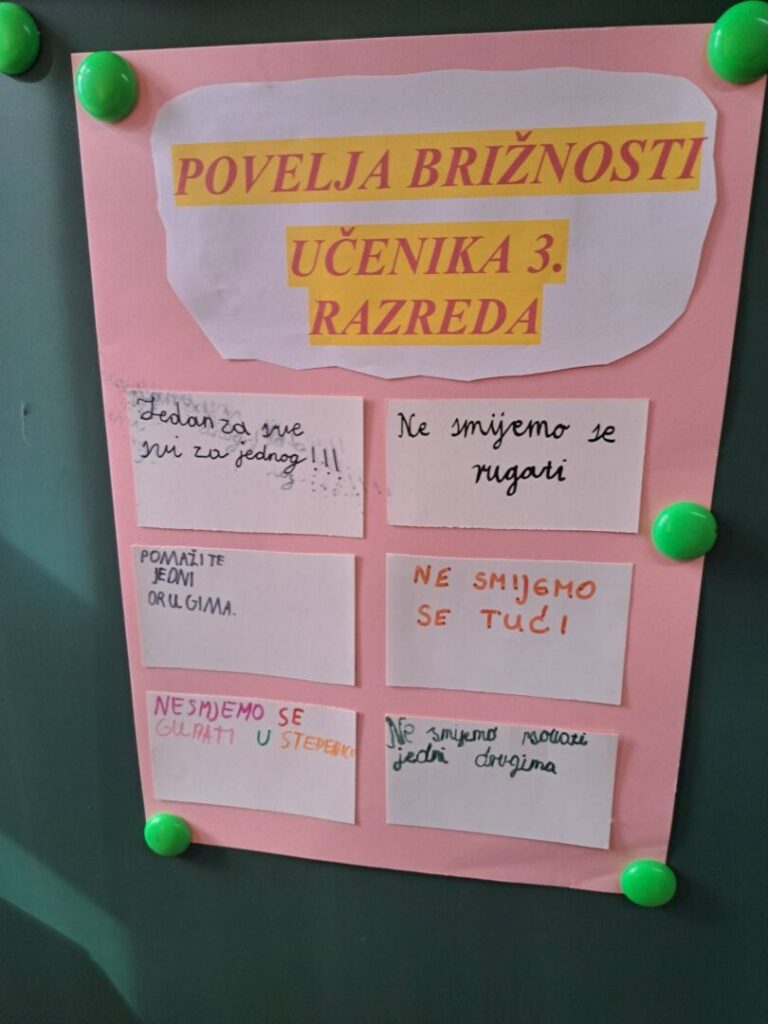 POVELJA BRIŽNOSTI
UČENIKA 3.
RAZREDA
Jedan za sve
svi za jednog!!!
Ne smijemo se
rugati
POMAŽITE
JEDNI
DRUGIMA.
NE SMIJEMO
SE TUĆI
NESMJEMO SE
GURATI U
Ne smijemo psovati
jedni drugima